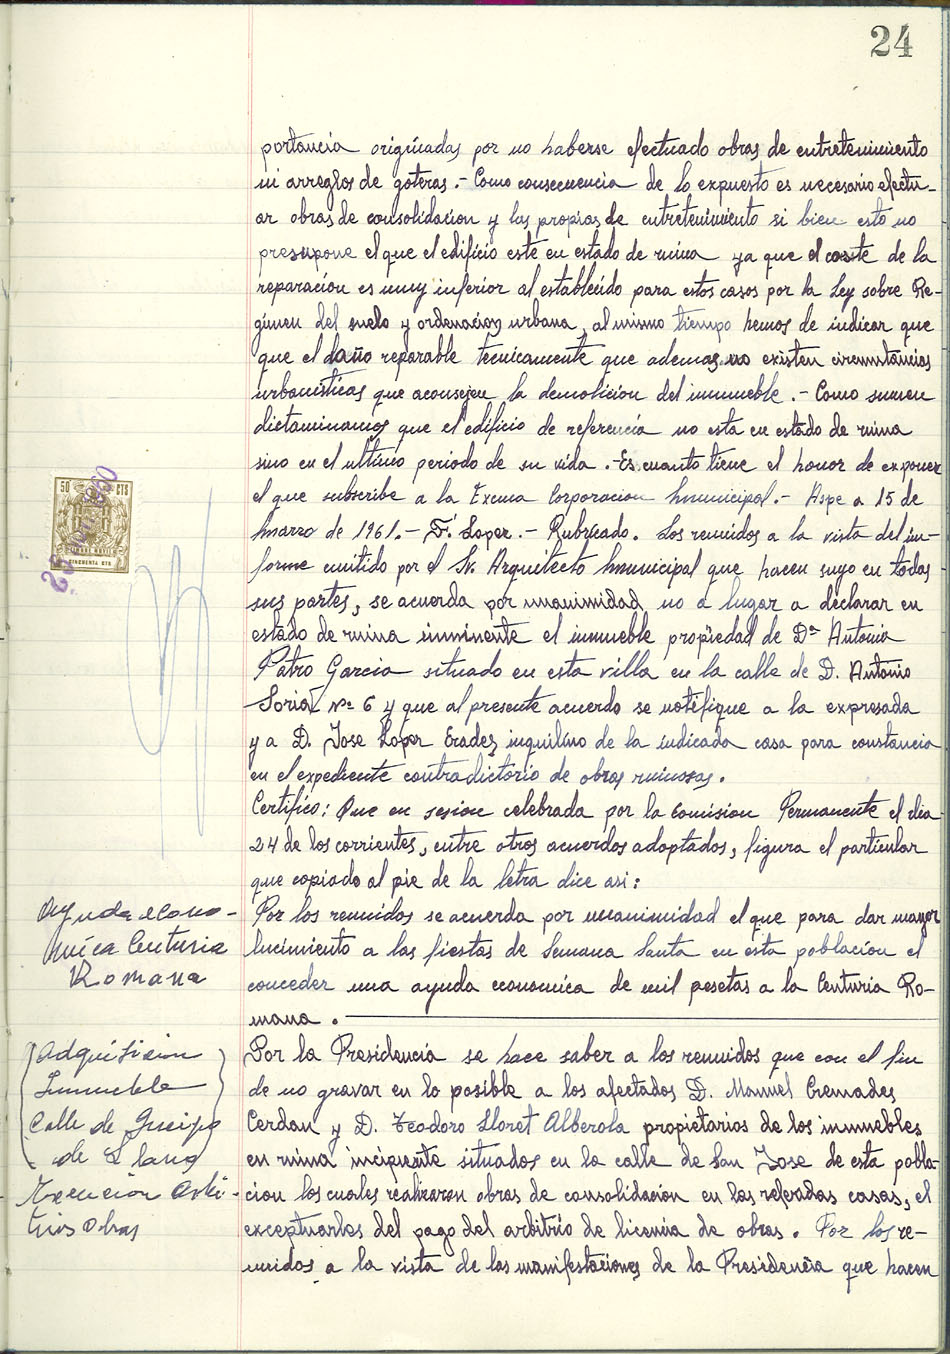 24
portancia originadas por no haberse efectuado obras de entretenimiento
ni arreglos de goteras.- Como consecuencia de lo expuesto es necesario efectu-
ar obras de consolidacion y las propias de entretenimiento si bien esto no
presupone el que el edificio este en estado de ruina ya que el coste de la
reparación es muy inferior al establecido para estos casos por la Ley sobre Re-
gimen del suelo y ordenacion urbana, al mismo tiempo hemos de indicar que
que el daño reparable tecnicamente que ademas no existen circunstancias
urbanisticas que aconsejen la demolicion del inmueble.- Como
dictaminamos que el edificio de referencia no esta en estado de ruina
sino en el ultimo periodo de su vida.- Es cuanto tiene el honor de exponer
el que subscribe a la Excma Corporacion Municipal.- Aspe a 15 de
Marzo de 1961.- F. Lopez.- Rubricado. Los reunidos a la vista del in-
forme emitido por el Sr. Arquitecto Municipal que hacen suyo en todas
sus partes, se acuerda por unanimidad no a lugar a declarar en
estado de ruina inminente el inmueble propiedad de Dª Antonia
Patro Garcia situado en esta villa en la calle de D. Antonio
Soria nº 6 y que al presente acuerdo se notifique a la expresada
y a D. Jose Lopez Erades inquilino de la indicada casa para constancia
en el expediente contradictorio de obras ruinosas.
Certifico: Que en sesion celebrada por la Comision Permanente el dia
24 de los corrientes, entre otros acuerdos adoptados, figura el particular
que copiado al pie de la letra dice asi:
Ayuda econo-
mica Centuria
Romana
Por los reunidos se acuerda por unanimidad el que para dar mayor
lucimiento a las fiestas de Semana Santa en esta poblacion el
conceder una ayuda economica de mil pesetas a la Centuria Ro-
mana.
Adquisicion
Inmueble
Calle de Queipo
de Llano
Exencion Arbi-
trios Obras
Por la Presidencia se hace saber a los reunidos que con el fin
de no gravar en lo posible a los afectados D. Manuel Cremades
Cerdan y D. Teodoro Lloret Alberola propietarios de los inmuebles
en ruina incipiente situados en la calle de San Jose de esta pobla-
cion los cuales realizaron obras de consolidacion en las referadas casas, el
exceptuarlos del pago del arbitrio de licencia de obras. Por los re-
unidos a la vista de las manifestaciones de la Presidencia que hacen
50 CTS
CINCUENTA CTS